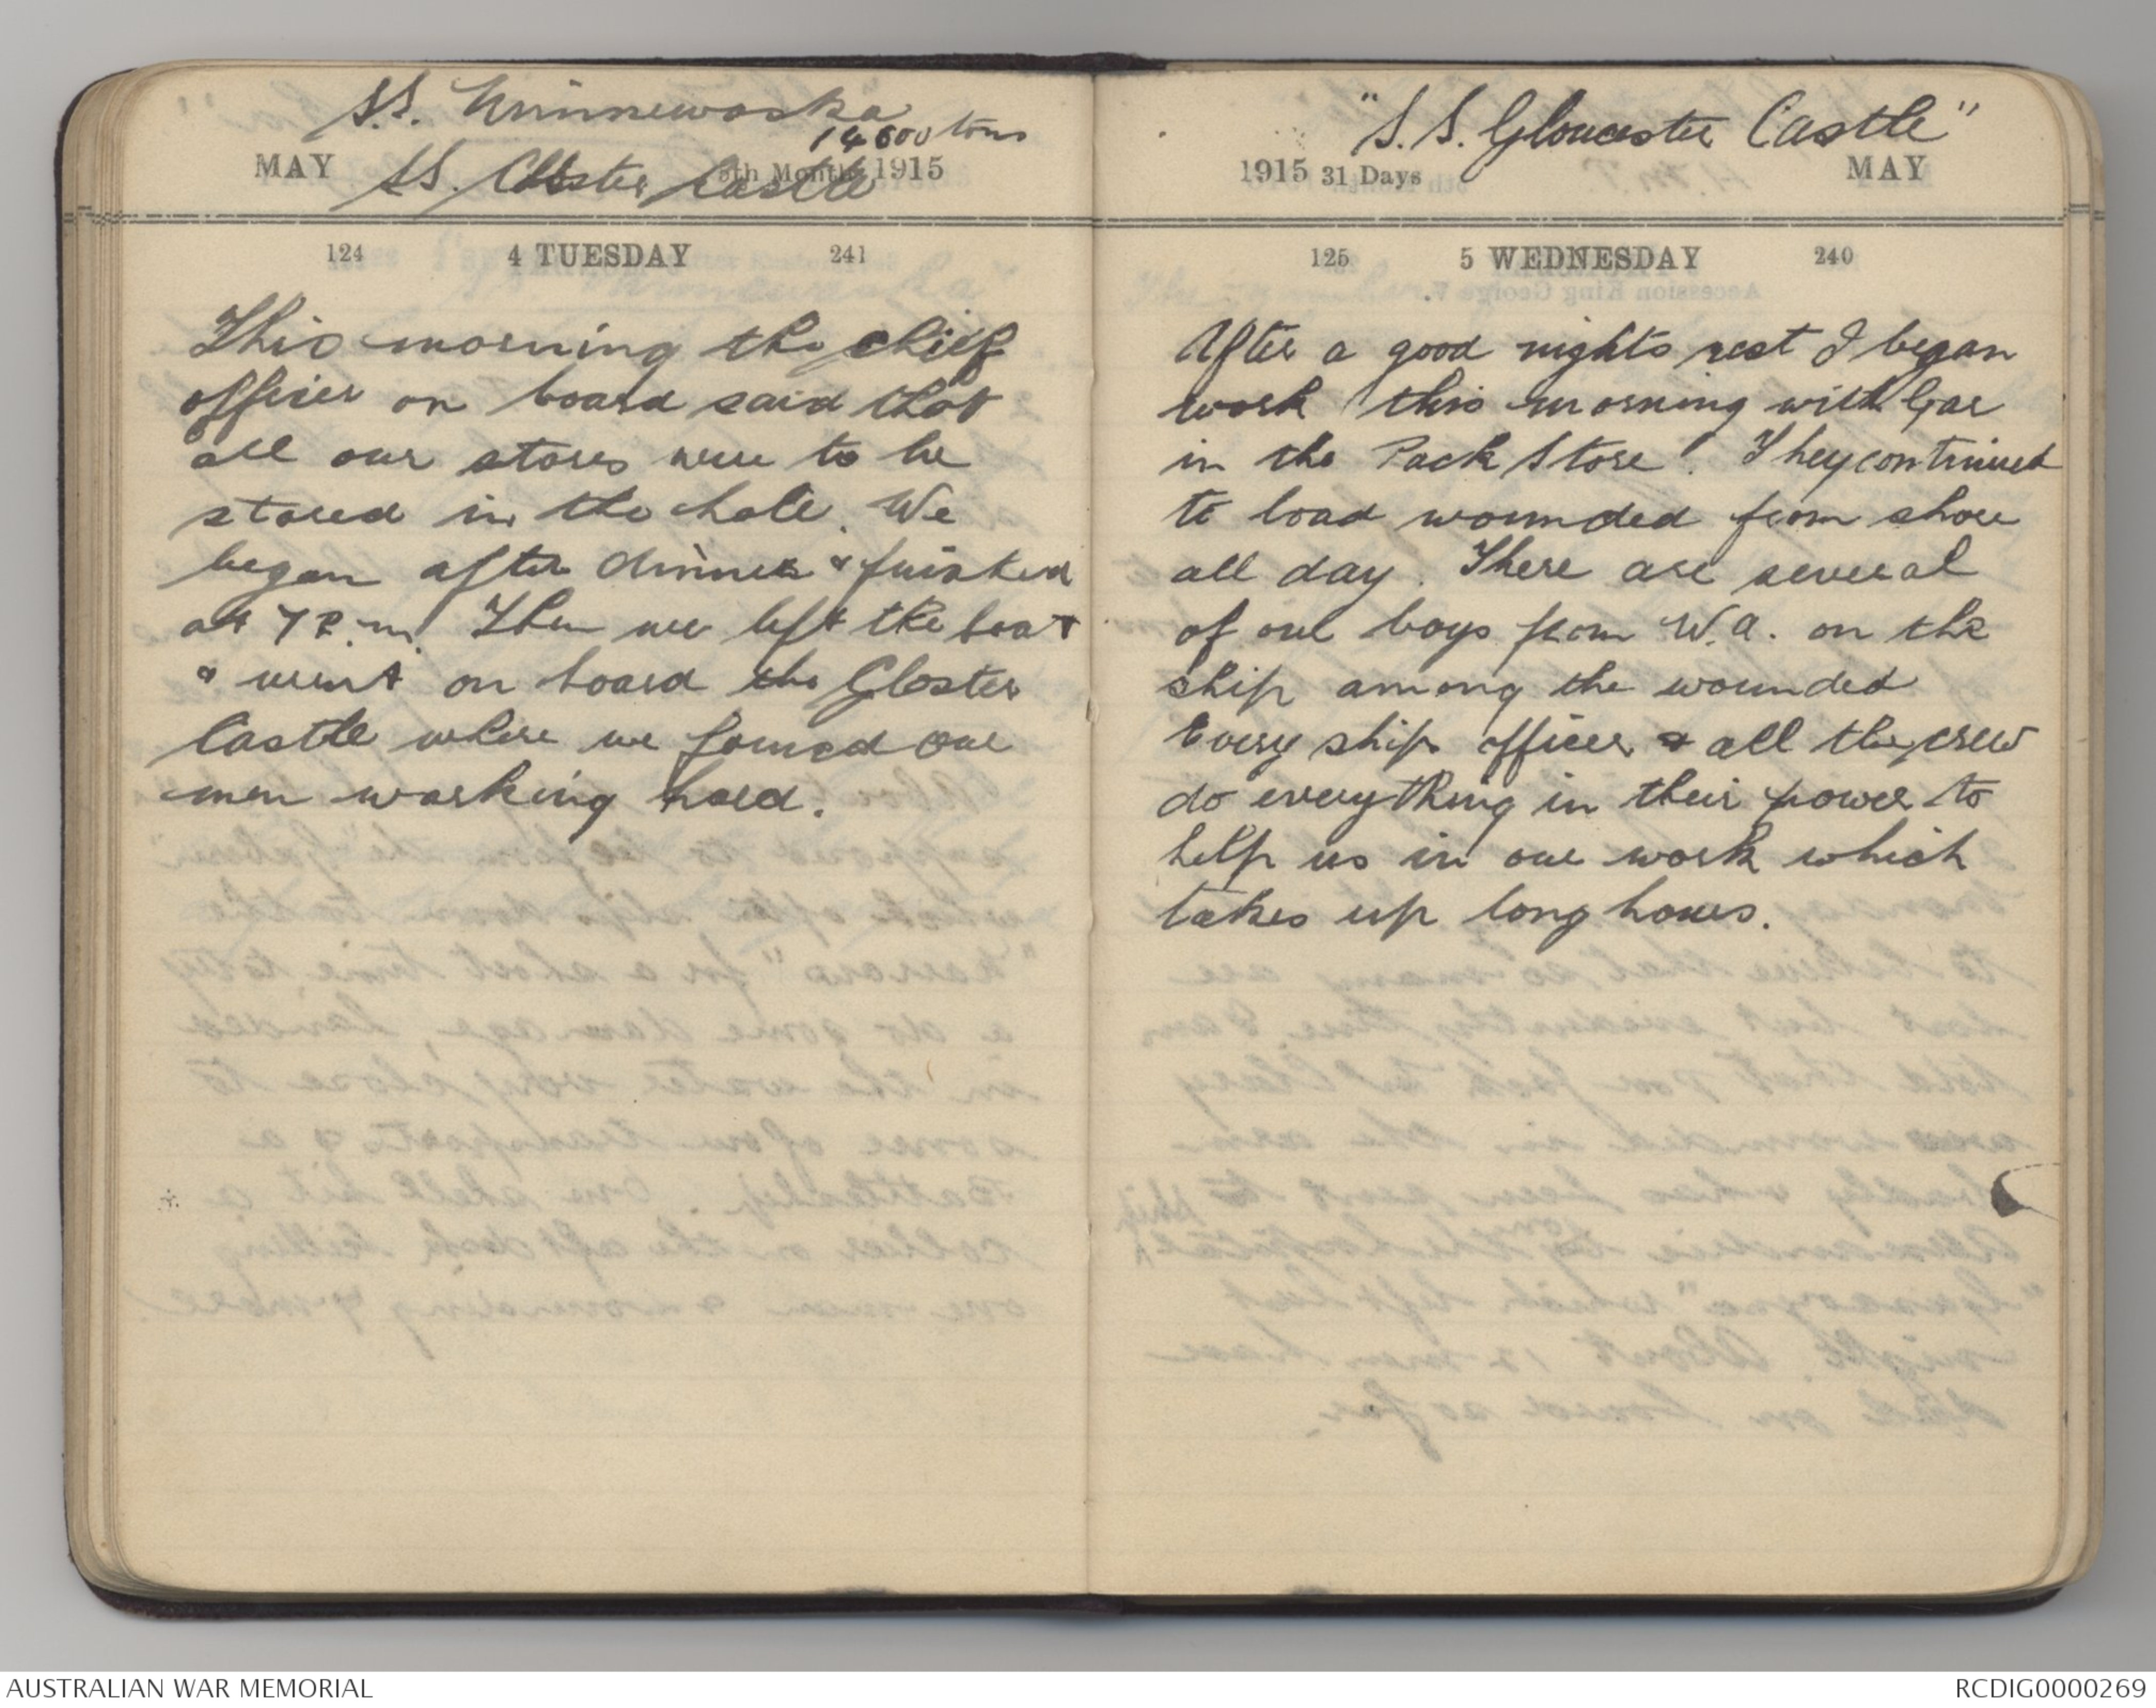 S.S. Minnewaska
14600 tons
MAY 5th Month 1915
S.S. Glbster Castle
124 4 TUESDAY 241
This morning the chief
officer on board said that
all our stores were to be
stored in the hole. We
began after dinner & finished
at 7 P.m. Then we left the boat
& went on board the Gloster
Castle where we found our
men working hard.
"S.S. Gloucester Castle"
1915 31 Days MAY
125 5 WEDNESDAY 240
After a good nights rest I began
work this morning with Gar
in the Pack Store. They continued
to load wounded from shore
all day. There are several
of our boys from W.A. on the
ship among the wounded
Every ship officer & all the crew
do everything in their power to
help us in our work which
takes up long hours.
AUSTRALIAN WAR MEMORIAL
RCDIG0000269